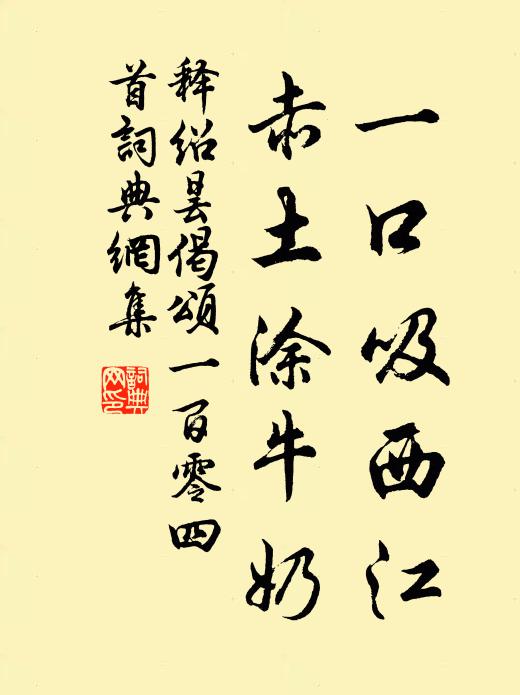 一口吸西江
赤土涂牛奶
释绍昙偈頌一百零四
首詞典網集
詞典
网印